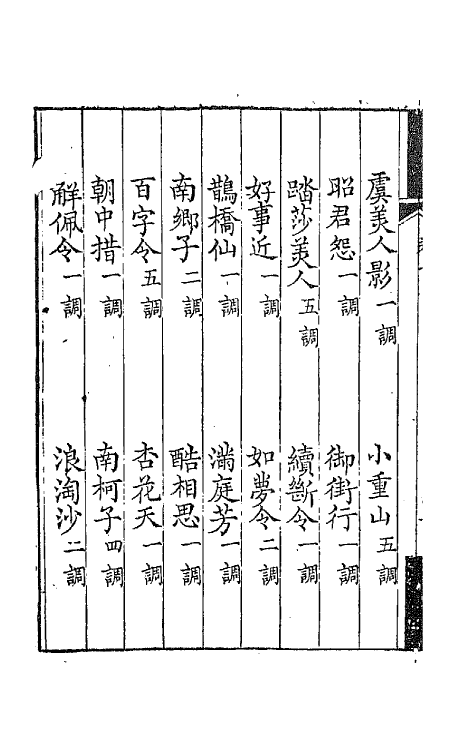 虞美人影一調　小重山五調
昭君怨一調　御街行一調
踏莎美人五調　續斷令一調
好事近一調　如夢令二調
鵲橋仙一調　滿庭芳一調
南鄉子二調　酷相思一調
百字令五調　杏花天一調
朝中措一調　南柯子四調
解佩令一調　浪淘沙二調